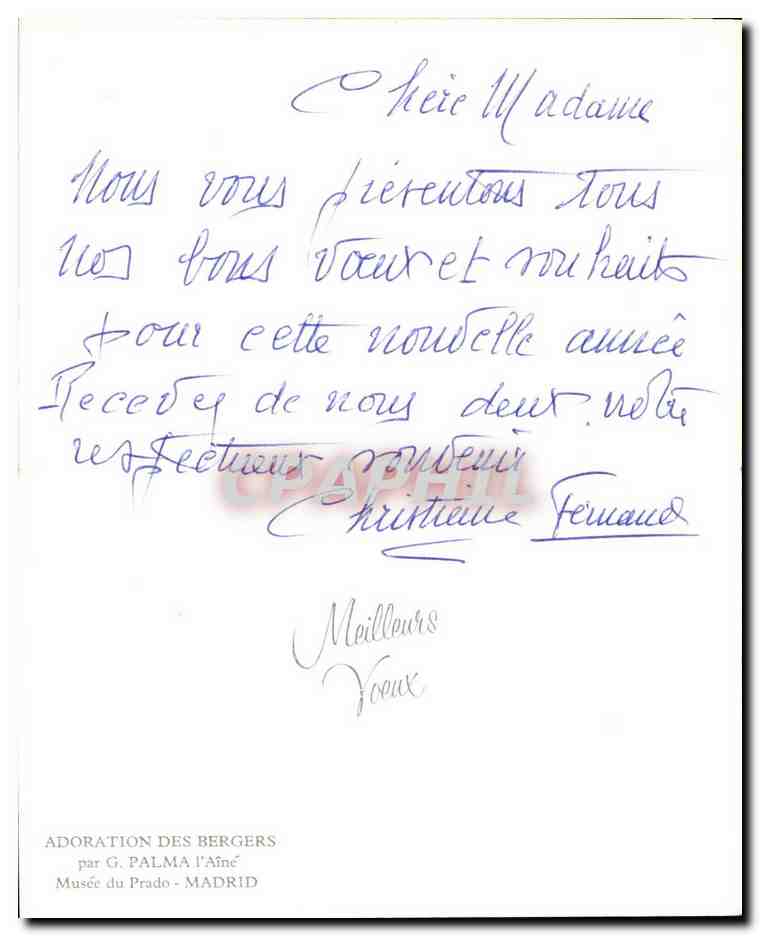 Chère Madame
Nous vous présentons tous
nos bons voeux et souhaits
pour cette nouvelle année
Recevez de nous deux. notre
respectueux souvenir
CPAPHIL
Christiane Fernand
Meilleurs
Voeux
ADORATION DES BERGERS
par G. PALMA l'Aîné
Musée du Prado - MADRID